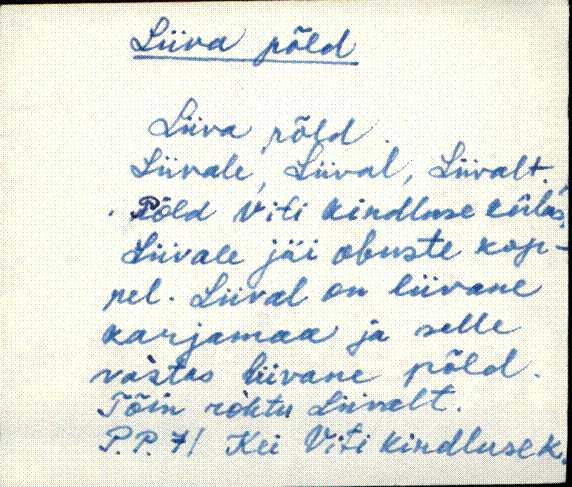 Liiva põld
Liiva põld.
Liivale, Liival, Liivalt.
Põld Viti kindluse
Liivale jäi obuste kop-
pel. Liival on liivane
karjamaa ja selle
vastas liivane põld.
Tõin rohtu Liivalt.
P.P. 71 Kei Viti kindluse k.